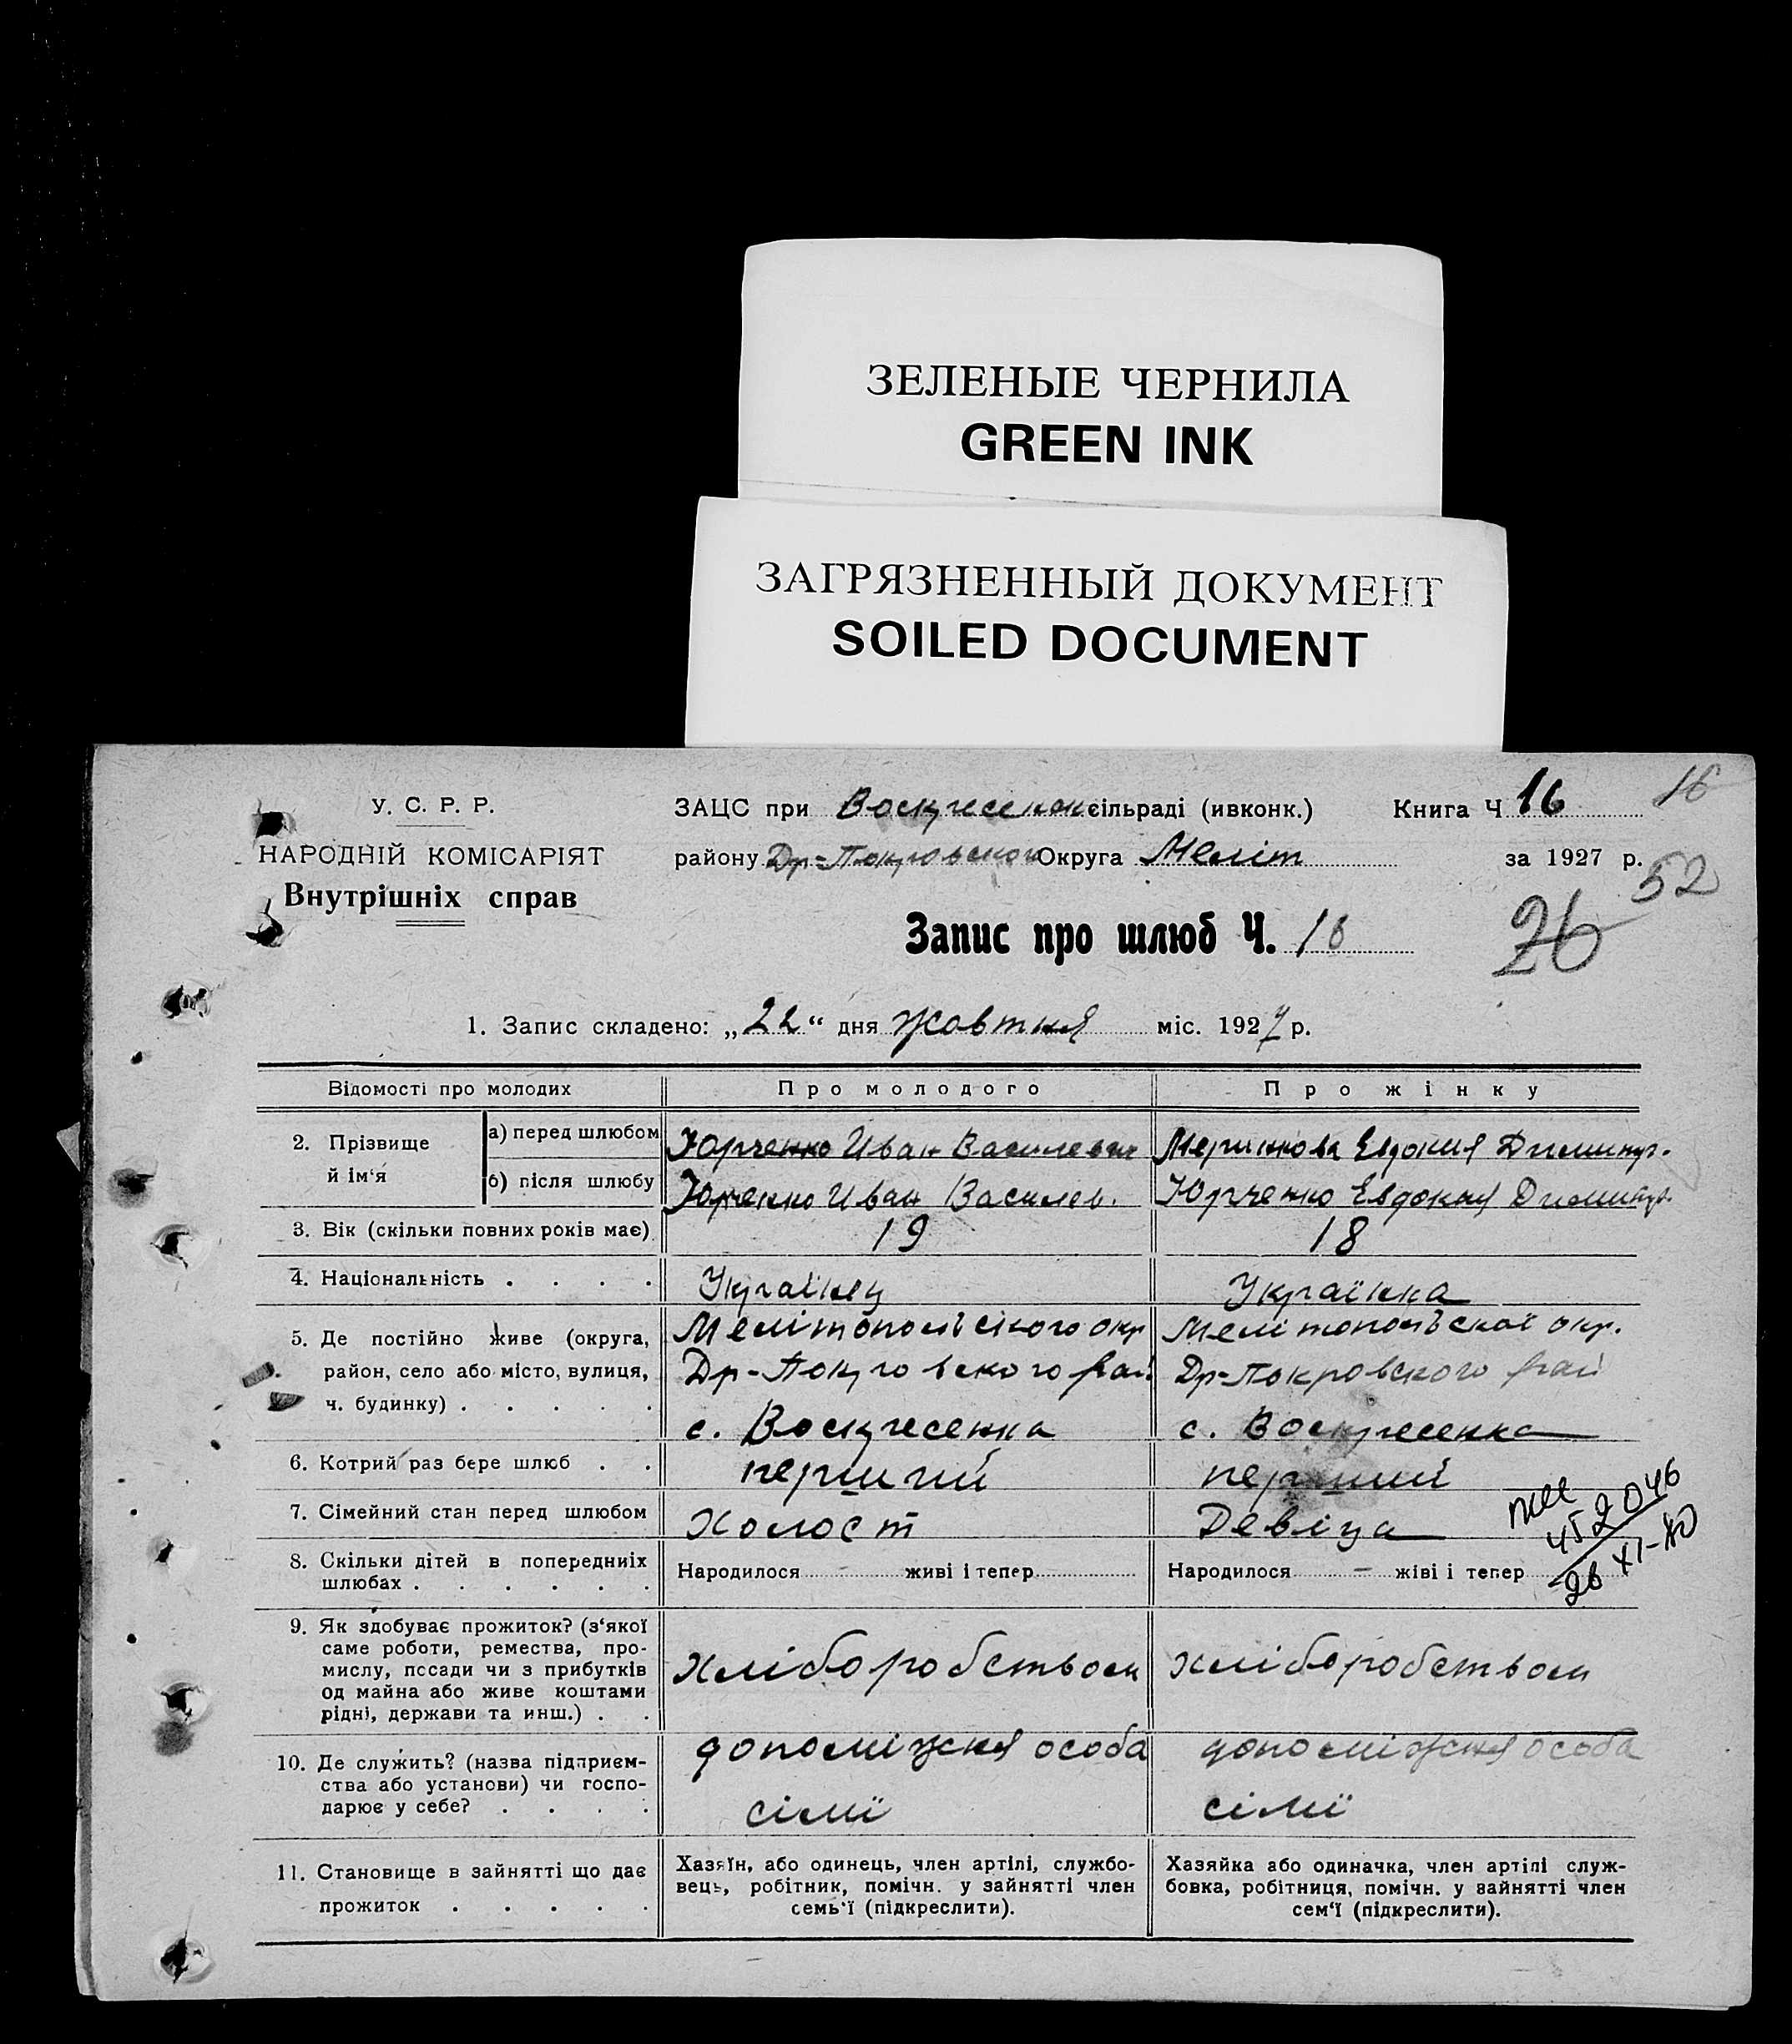 ЗЕЛЕНЫЕ ЧЕРНИЛА
GREEN INK
ЗАГРЯЗНЕННЫЙ ДОКУМЕНТ
SOILED DOCUMENT
У. С. Р. Р.
НАРОДНІЙ КОМІСАРІЯТ
Внутрішніх справ
ЗАЦС при Воскресенск сільраді (ивконк.) Книга Ч 16 16
району Др-Покровского Округа Меліт за 1927 р.
52
26
Запис про шлюб Ч. 16
1. Запис складено: „22“ дня жовтня міс. 1927 р.
Відомості про молодих Про молодого Про жінку
2. Прізвище й ім‘я
а) перед шлюбом Юрченко Иван Василевич Меринкова Евдокия Димитр.
б) після шлюбу Юрченко Иван Василев. Юрченко Евдокия Димитр.
3. Вік (скільки повних років має) 19 18
4. Національність . . . . Українец Українка
5. Де постійно живе (округа, Мелітопольского окр Мелітопольскої окр.
район, село або місто, вулиця, Др-Покровского рай Др-Покровского рай
ч. будинку) . . . . . с. Воскресенка с. Воскресенка
6. Котрий раз бере шлюб . . перший перший
7. Сімейний стан перед шлюбом Холост Девіца
452046
26 XI-80
8. Скільки дітей в попередниіх
шлюбах . . . . . . Народилося - живі і тепер Народилося - жіві і тепер
9. Як здобуває прожиток? (з‘якої
саме роботи, ремества, про-
мислу, посади чи з прибутків хліборобством хліборобством
од майна або живе коштами
рідні, держави та инш.) . .
10. Де служить? (назва підприєм- допоміжня особа допоміжня особа
ства або установи) чи госпо-
дарює у себе? . . . . сімї сімї
11. Становище в зайнятті що дає
прожиток . . . . .
Хазяїн, або одинець, член артілі, службо-
вець, робітник, помічн. у зайнятті член
семь‘ї (підкреслити).
Хазяйка або одиначка, член артілі служ-
бовка, робітниця, помічн. у зайнятті член
сем‘ї (підкреслити).